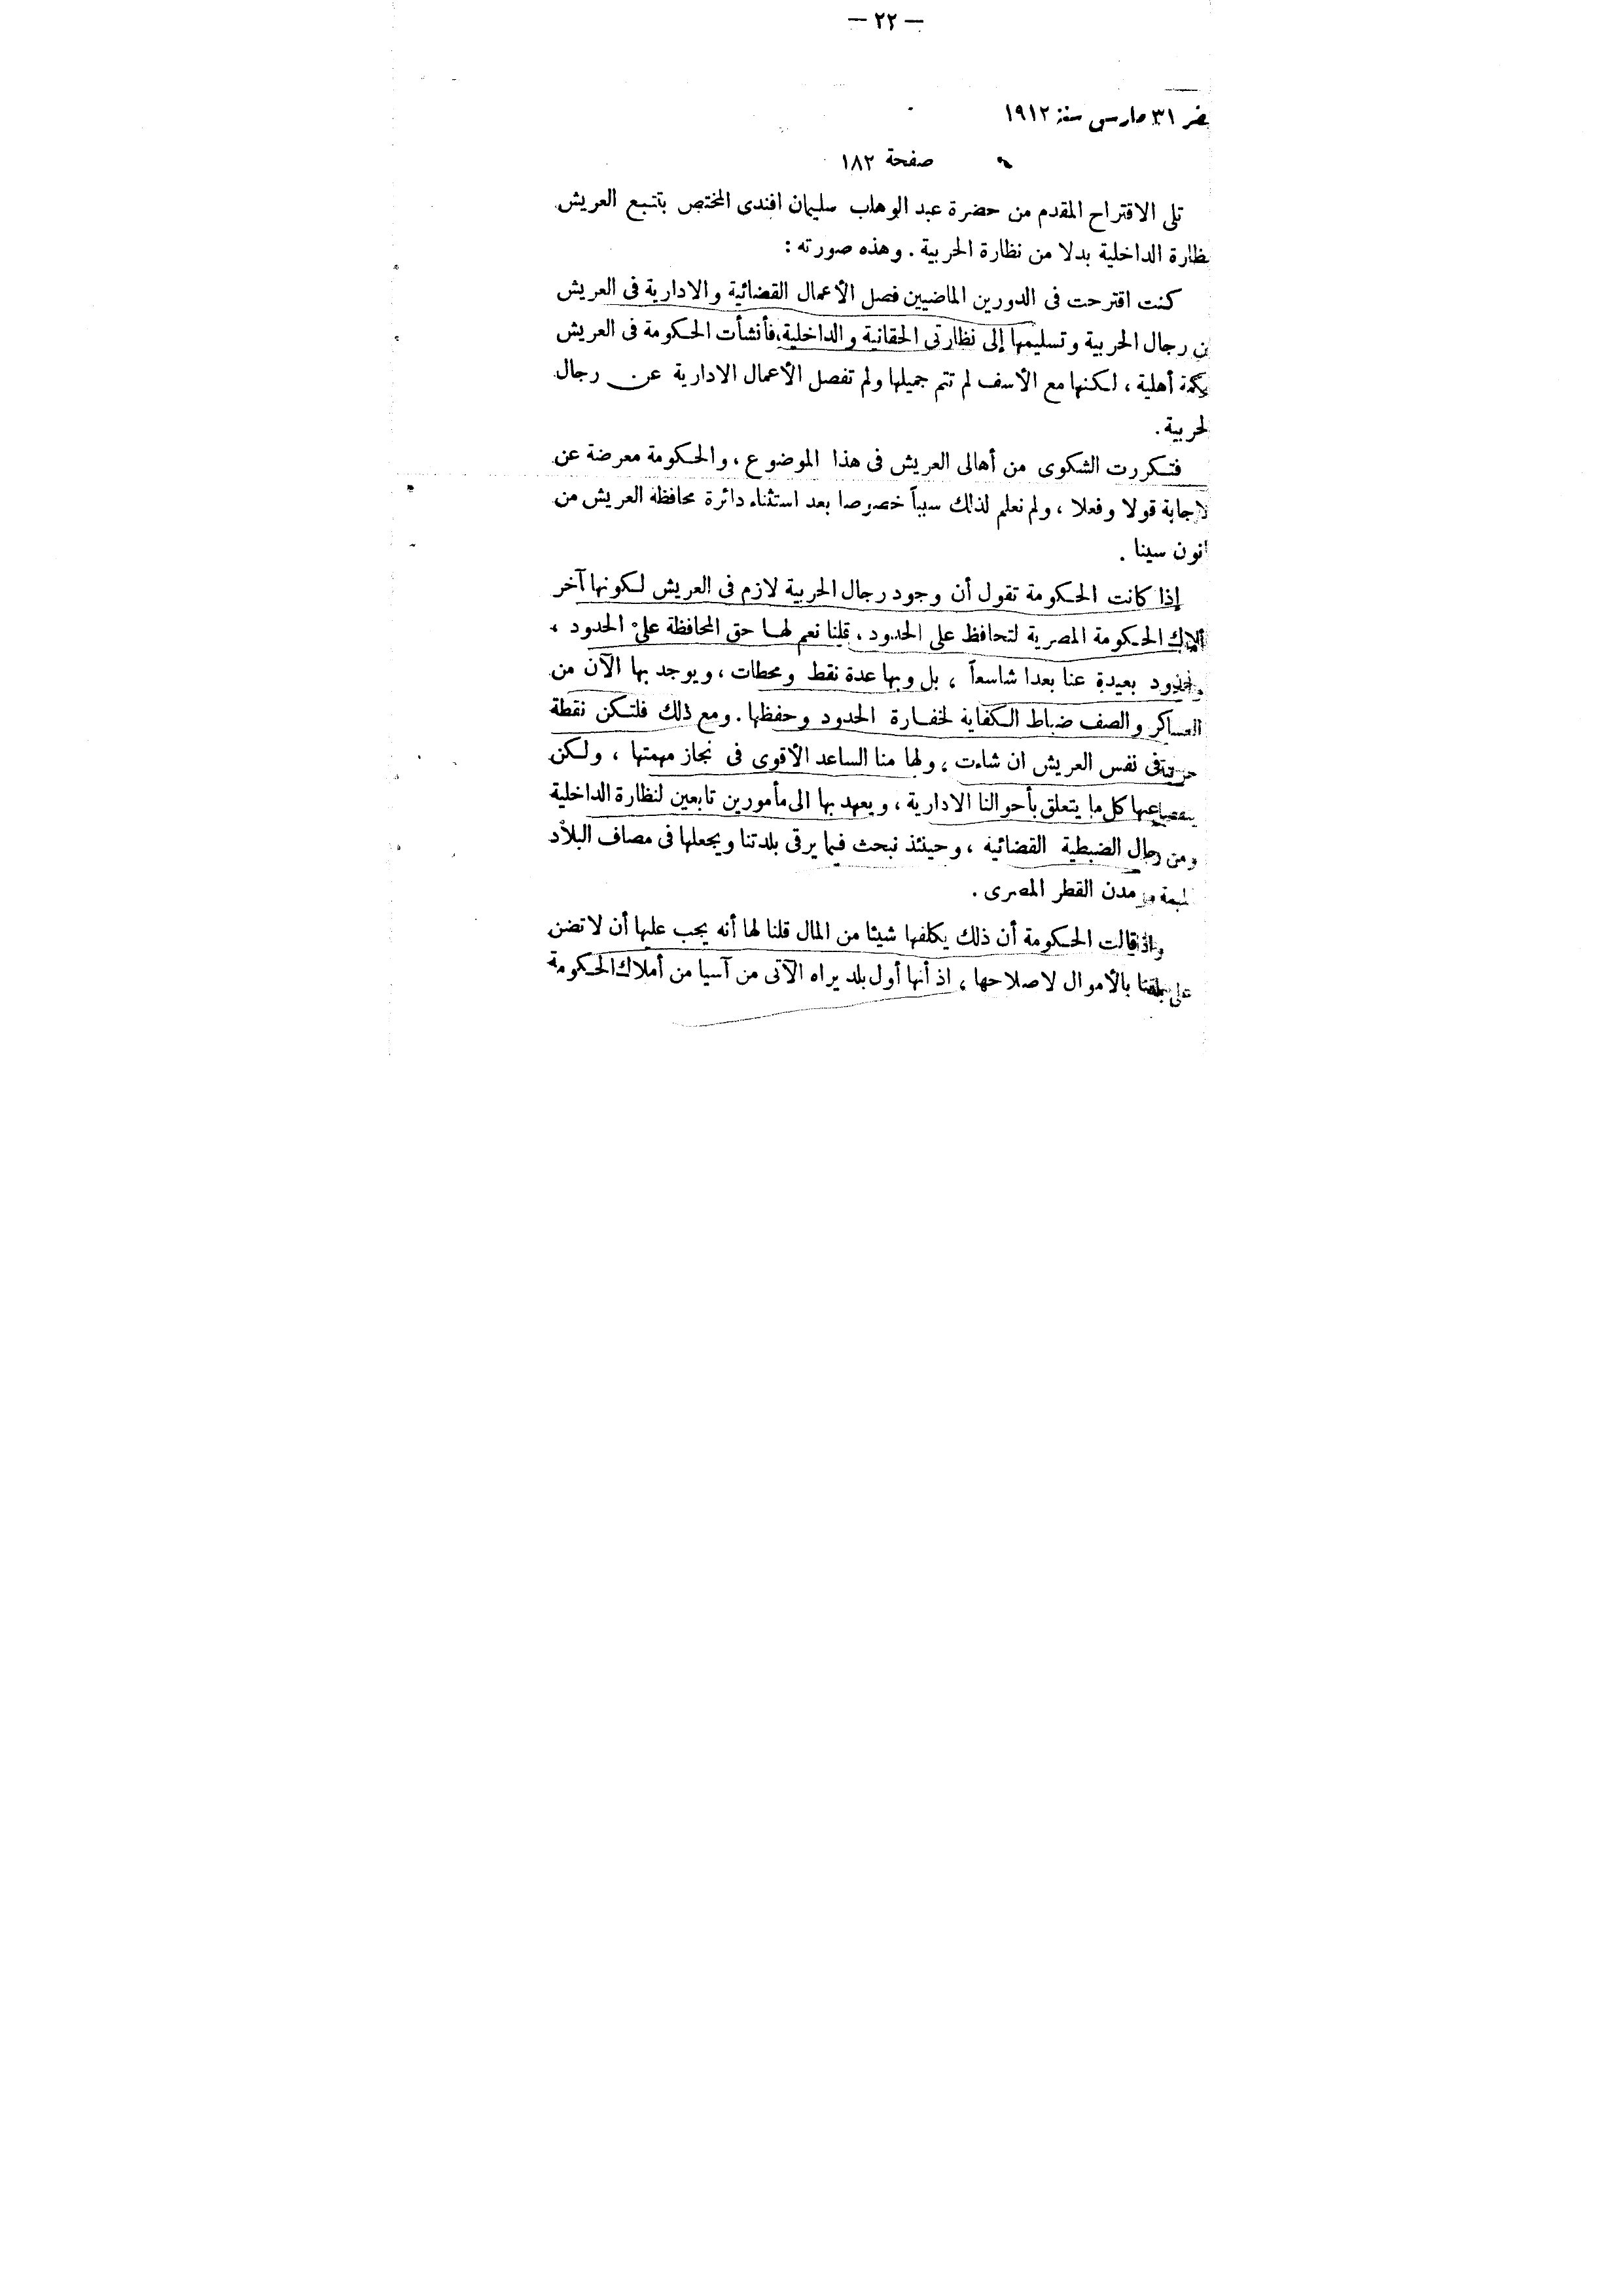 — ٢٢ —
٣١ مارس سنة ١٩١٢
صفحة ١٨٢
تلى الاقتراح المقدم من حضرة عبد الوهاب سليمان افندى المختص بتتبع العريش
الداخلية بدلا من نظارة الحربية . وهذه صورته :
كنت اقترحت فى الدورين الماضيين فصل الأعمال القضائية والادارية فى العريش
رجال الحربية وتسليمها إلى نظارتى الحقانية والداخلية، فأنشأت الحكومة فى العريش
أهلية ، لكنها مع الأسف لم تتم جميلها ولم تفصل الأعمال الادارية عن رجال
لحربية .
فتكررت الشكوى من أهالى العريش فى هذا الموضوع ، والحكومة معرضة عن
لاجابة قولا وفعلا ، ولم نعلم لذلك سبباً خصوصا بعد استثناء دائرة محافظة العريش من
انون سينا .
إذا كانت الحكومة تقول أن وجود رجال الحربية لازم فى العريش لكونها آخر
الحكومة المصرية لتحافظ على الحدود ، قلنا نعم لها حق المحافظة على الحدود ،
بعيدة عنا بعدا شاسعاً ، بل وبها عدة نقط ومحطات ، ويوجد بها الآن من
العساكر والصف ضباط الكفاية لخفارة الحدود وحفظها . ومع ذلك فلتكن نقطة
فى نفس العريش ان شاءت ، ولها منا الساعد الأقوى فى نجاز مهمتها ، ولكن
عنها كل ما يتعلق بأحوالنا الادارية ، ويعهد بها الى مأمورين تابعين لنظارة الداخلية
ومن رجال الضبطية القضائية ، وحينئذ نبحث فيما يرقى بلدتنا ويجعلها فى مصاف البلاد
مدن القطر المصرى .
قالت الحكومة أن ذلك يكلفها شيئا من المال قلنا لها أنه يجب عليها أن لا تضن
على بالأموال لاصلاحها ، اذ أنها أول بلد يراه الآتى من آسيا من أملاك الحكومة